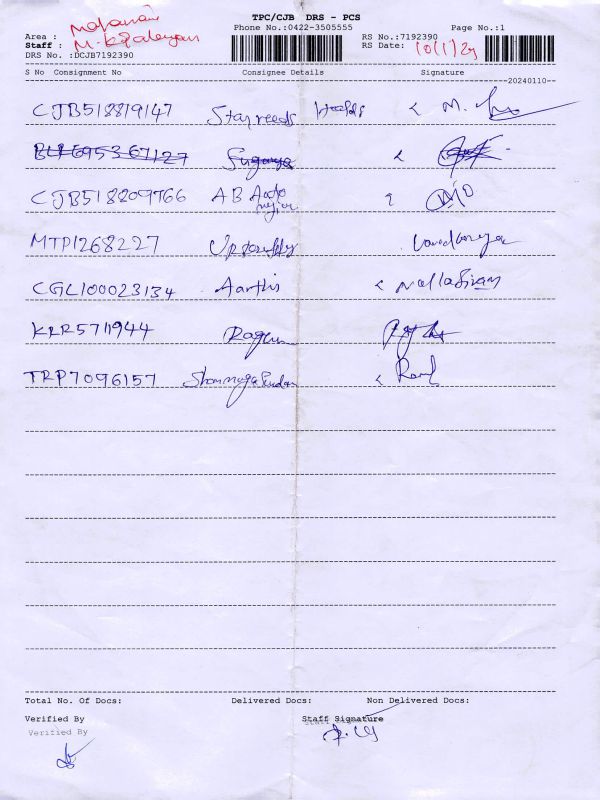 TPC/CJB DRS - PCS
Phone No.:0422-3505555
Page No.:1
Area :
Staff :
DRS No. :DCJB7192390
RS No.:7192390
RS Date: 10/1/24
S No Consignment No Consignee Details Signature
20240110
CJB518819147 Star reeds Healds
BLR695367127 Suganya
CJB518809766 A B Auto
MTP1268227
CGL100023134 Aarthi Nallasivam
KRR5711944 Ragu
TRP7096157
Total No. Of Docs: Delivered Docs: Non Delivered Docs:
Verified By Staff Signature
Verified By Staff Signature